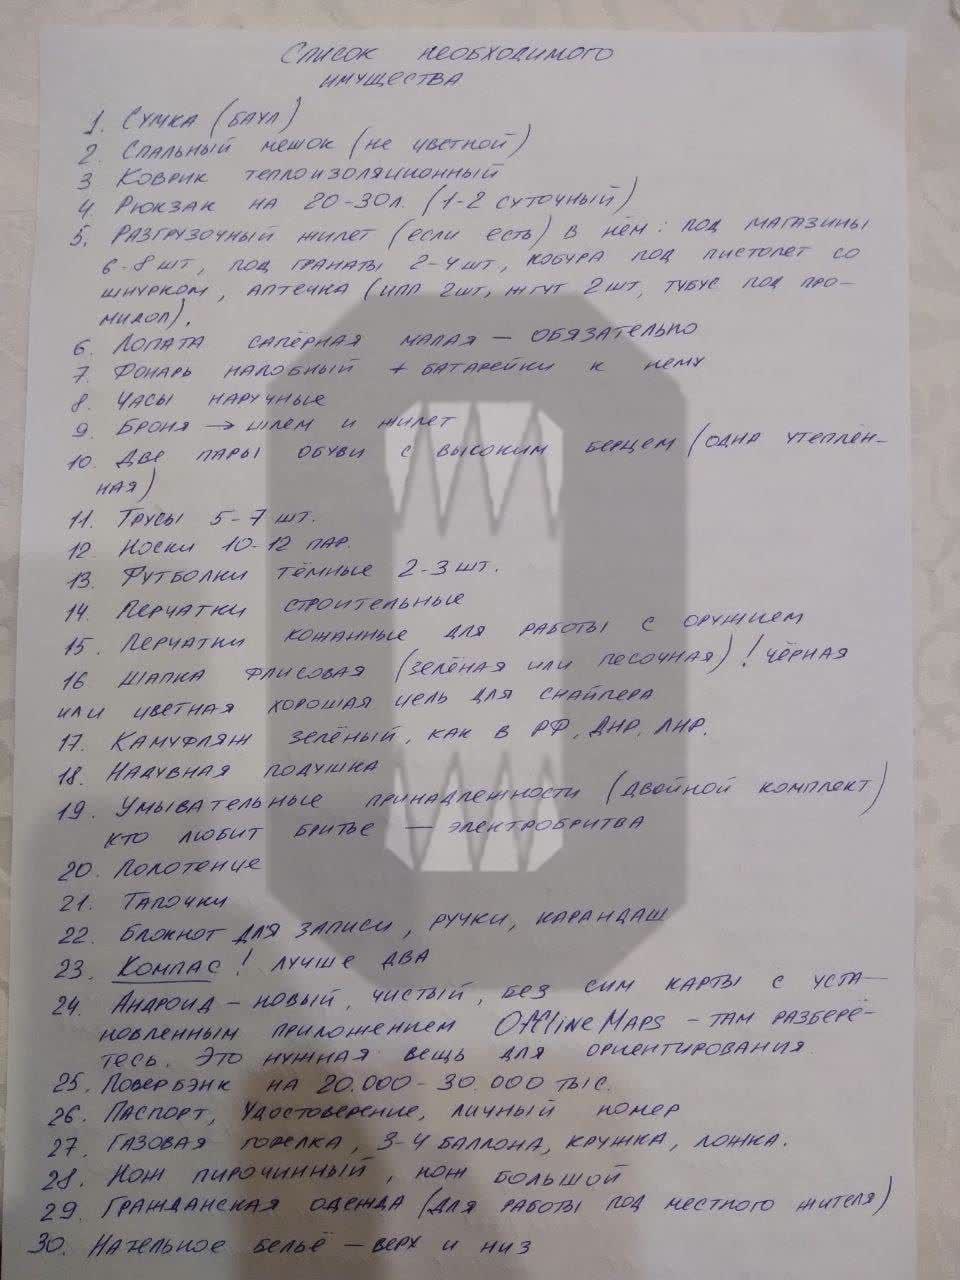 Список необходимого
имущества
1. Сумка (баул)
2. Спальный мешок (не цветной)
3 Коврик теплоизоляционный
4. Рюкзак на 20-30л. (1-2 суточный)
5. Разгрузочный жилет (если есть) в нём: под магазины
6-8 шт, под гранаты 2-4 шт, кобура под пистолет со
шнурком, аптечка (ипп 2шт, жгут 2 шт, тубус под про-
мидол).
6. Лопата сапёрная малая — обязательно
7. Фонарь налобный + батарейки к нему
8. Часы наручные
9. Броня → шлем и жилет
10. Две пары обуви с высоким берцем (одна утеплён-
ная)
11. Трусы 5-7 шт.
12. Носки 10-12 пар.
13. Футболки тёмные 2-3 шт.
14. Перчатки строительные
15. Перчатки кожанные для работы с оружием
16 Шапка флисовая (зелёная или песочная)! чёрная
или цветная хорошая цель для снайпера
17. Камуфляж зелёный, как в РФ, ДНР, ЛНР.
18. Надувная подушка
19. Умывательные принадлежности (двойной комплект)
кто любит бритье — электробритва
20. Полотенце
21. Тапочки
22. Блокнот для записи, ручки, карандаш
23. Компас! лучше два
24. Андроид – новый, чистый, без сим карты с уста-
новленным приложением Offline Maps – там разберё-
тесь. Это нужная вещь для ориентирования
25. Повербэнк на 20.000 - 30.000 тыс.
26. Паспорт, Удостоверение, личный номер
27. Газовая горелка, 3-4 баллона, кружка, ложка.
28. Нож пирочинный, нож большой
29. Гражданская одежда (для работы под местного жителя)
30. Нательное бельё – верх и низ